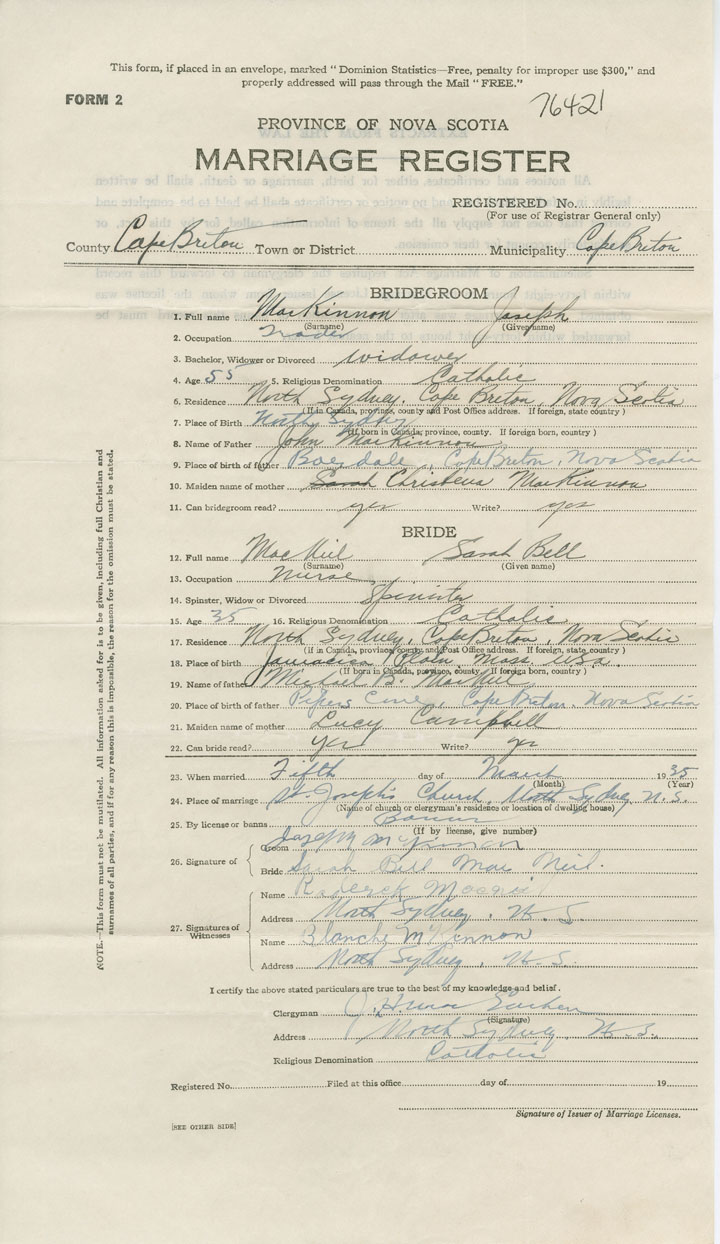 This form, if placed in an envelope, marked "Dominion Statistics—Free, penalty for improper use $300," and
properly addressed will pass through the Mail "FREE."
FORM 2
76421
PROVINCE OF NOVA SCOTIA
MARRIAGE REGISTER
REGISTERED No.
(For use of Registrar General only)
County Cape Breton Town or District Municipality Cape Breton
BRIDEGROOM
1. Full name MacKinnon Joseph
(Surname) (Given name)
2. Occupation Trader
3. Bachelor, Widower or Divorced Widower
4. Age 55 5. Religious Denomination Catholic
6. Residence North Sydney, Cape Breton, Nova Scotia
(If in Canada, province, county and Post Office address. If foreign, state country)
7. Place of Birth North Sydney
(If born in Canada, province, county. If foreign born, country)
8. Name of Father John MacKinnon
9. Place of birth of father Boisdale, Cape Breton, Nova Scotia
10. Maiden name of mother Sarah Christena MacKinnon
11. Can bridegroom read? yes Write? yes
BRIDE
12. Full name MacNeil Sarah Bell
(Surname) (Given name)
13. Occupation Nurse
14. Spinster, Widow or Divorced Spinster
15. Age 35 16. Religious Denomination Catholic
17. Residence North Sydney, Cape Breton, Nova Scotia
(If in Canada, province, county and Post Office address. If foreign, state country)
18. Place of birth Jamaica Plain, Mass. USA.
(If born in Canada, province, county. If foreign born, country)
19. Name of father Michael B. MacNeil
20. Place of birth of father Pipers Cove, Cape Breton, Nova Scotia
21. Maiden name of mother Lucy Campbell
22. Can bride read? Yes Write? yes
23. When married Fifth day of March 1935
(Month) (Year)
24. Place of marriage St. Joseph's Church, North Sydney, N.S.
(Name of church or clergyman's residence or location of dwelling house)
25. By license or banns Banns
(If by license, give number)
26. Signature of
Groom Joseph
Bride Sarah Bell Mac Neil.
27. Signatures of Witnesses
Name Roderick
Address North Sydney, N.S.
Name Blanche McKinnon
Address North Sydney, N.S.
I certify the above stated particulars are true to the best of my knowledge and belief.
Clergyman J. H.
(Signature)
Address North Sydney, N.S.
Religious Denomination Catholic
Registered No. Filed at this office day of 19
Signature of Issuer of Marriage Licenses.
[SEE OTHER SIDE]
NOTE.—This form must not be mutilated. All information asked for is to be given, including full Christian and
surnames of all parties, and if for any reason this is impossible, the reason for the omission must be stated.